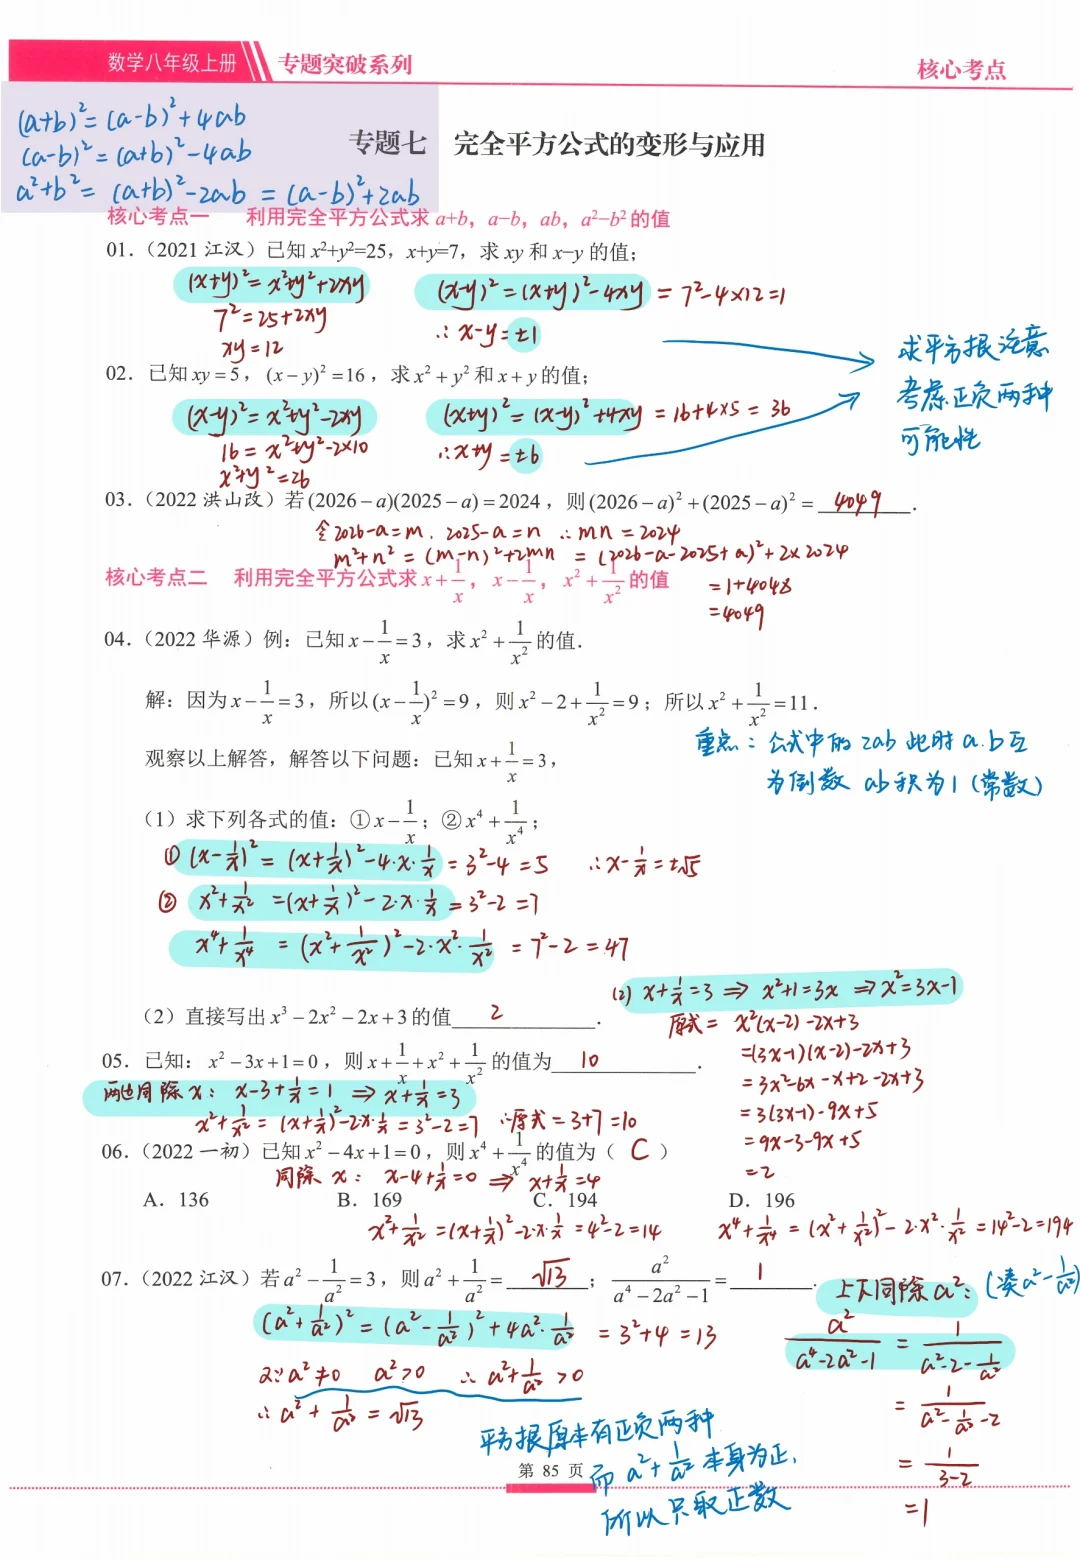 数学八年级上册 专题突破系列 核心考点
(a+b)²=(a-b)²+4ab
(a-b)²=(a+b)²-4ab
a²+b²= (a+b)²-2ab = (a-b)²+2ab
专题七 完全平方公式的变形与应用
核心考点一 利用完全平方公式求 a+b，a−b，ab，a²−b² 的值
01.（2021 江汉）已知 x²+y²=25，x+y=7，求 xy 和 x−y 的值；
(x+y)²=x²+y²+2xy (x-y)²=(x+y)²-4xy = 7²-4×12=1
7²=25+2xy ∴ x-y=±1
xy=12
求平方根注意
考虑正负两种
可能性
02．已知 xy=5，(x−y)²=16，求 x²+y² 和 x+y 的值；
(x-y)²=x²+y²-2xy (x+y)²=(x-y)²+4xy = 16+4×5 = 36
16= x²+y²-2×10 ∴x+y=±6
x²+y²=26
03.（2022 洪山改）若 (2026−a)(2025−a)=2024，则 (2026−a)²+(2025−a)²= 4049 ．
令2026-a=m . 2025-a=n ∴ mn=2024
m²+n² = (m-n)²+2mn = (2026-a-2025+a)²+2×2024
=1+4048
=4049
核心考点二 利用完全平方公式求 x+1/x，x−1/x，x²+1/x² 的值
04.（2022 华源）例：已知 x−1/x=3，求 x²+1/x² 的值．
解：因为 x−1/x=3，所以 (x−1/x)²=9，则 x²−2+1/x²=9；所以 x²+1/x²=11．
重点：公式中的 2ab 此时 a.b互
为倒数 ab积为1（常数）
观察以上解答，解答以下问题：已知 x+1/x=3，
（1）求下列各式的值：①x−1/x；②x⁴+1/x⁴；
① (x-1/x)² = (x+1/x)²-4·x·1/x = 3²-4 =5 ∴x-1/x=±√5
② x²+1/x² =(x+1/x)²-2·x·1/x =3²-2 =7
x⁴+1/x⁴ = (x²+1/x²)²-2·x²·1/x² = 7²-2 =47
（2）直接写出 x³−2x²−2x+3 的值 2 ．
(2) x+1/x=3 ⇒ x²+1=3x ⇒x²=3x-1
原式= x²(x-2)-2x+3
=(3x-1)(x-2)-2x+3
=3x²-6x-x+2-2x+3
=3(3x-1)-9x+5
=9x-3-9x+5
=2
05．已知：x²−3x+1=0，则 x+1/x+x²+1/x² 的值为 10 ．
两边同除x： x-3+1/x=1 ⇒ x+1/x=3
x²+1/x² = (x+1/x)²-2·x·1/x = 3²-2=7 ∴原式=3+7=10
06.（2022 一初）已知 x²−4x+1=0，则 x⁴+1/x⁴ 的值为（ C ）
同除 x： x-4+1/x=0 ⇒ x+1/x=4
A．136 B．169 C．194 D．196
x²+1/x² =(x+1/x)²-2·x·1/x =4²-2=14 x⁴+1/x⁴ = (x²+1/x²)²-2·x²·1/x² =14²-2=194
07.（2022 江汉）若 a²−1/a²=3，则 a²+1/a²= √13 ；a²/(a⁴−2a²−1)= 1 ．
(a²+1/a²)²=(a²-1/a²)²+4a²·1/a² =3²+4=13
又∵a²≠0 a²>0 ∴ a²+1/a²>0
∴ a²+1/a² = √13
上下同除a²：(凑a²-1/a²)
a²/(a⁴-2a²-1) = 1/(a²-2-1/a²)
= 1/(a²-1/a²-2)
= 1/(3-2)
=1
平方根原本有正负两种
而 a²+1/a² 本身为正，
所以只取正数
第 85 页